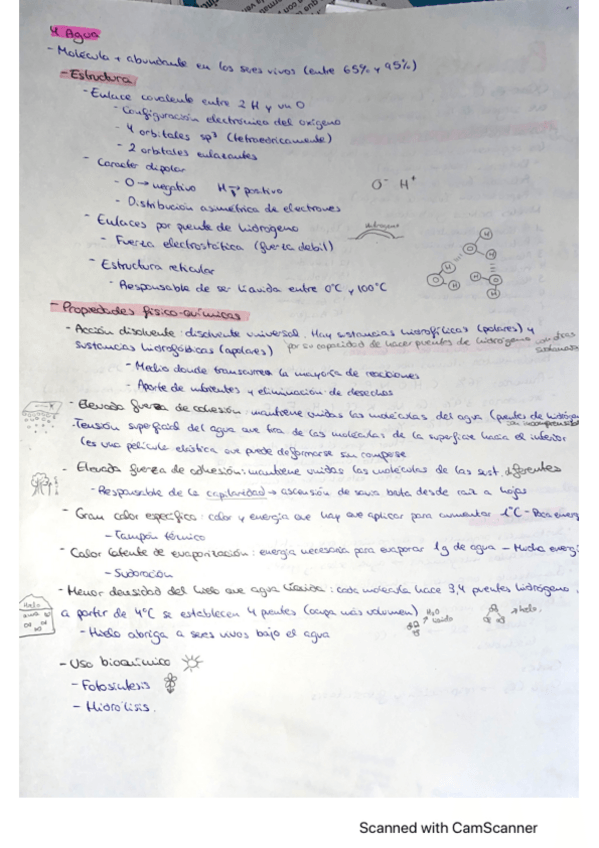 4 Agua
- Molécula + abundante en los seres vivos (entre 65% y 95%)
- Estructura
- Enlace covalente entre 2 H y un O
- Configuración electrónica del oxígeno
- 4 orbitales sp³ (tetraédricamente)
- 2 orbitales enlazantes
- Caracter dipolar
- O → negativo H → positivo O⁻ H⁺
- Distribución asimétrica de electrones
- Enlaces por puente de hidrógeno
- Fuerza electrostática (fuerza débil)
- Estructura reticular
- Responsable de ser líquida entre 0°C y 100°C
- Propiedades físico-químicas
- Acción disolvente: disolvente universal. Hay sustancias hidrofílicas (polares) y
sustancias hidrofóbicas (apolares) por su capacidad de hacer puentes de hidrógeno con otras sustancias
- Medio donde transcurren la mayoría de reacciones
- Aporte de nutrientes y eliminación de desechos
- Elevada fuerza de cohesión: mantiene unidas las moléculas del agua (puentes de hidrógeno
- Tensión superficial del agua que tira de las moléculas de la superficie hacia el inferior
(es una película elástica que puede deformarse sin romperse
- Elevada fuerza de adhesión: mantiene unidas las moléculas de las sust. diferentes
- Responsable de la capilaridad → ascensión de savia bruta desde raíz a hojas
- Gran calor específico: calor y energía que hay que aplicar para aumentar 1°C - Poca energ
- Tampón térmico
- Calor latente de evaporización: energía necesaria para evaporar 1g de agua - Mucha energ
- Sudoración
- Menor densidad del hielo que agua líquida: cada molécula hace 3,4 puentes hidrógeno,
a partir de 4°C se establecen 4 puentes (ocupa más volumen) H₂O líquido → hielo.
- Hielo abriga a seres vivos bajo el agua
Hielo
agua
- Uso bioquímico
- Fotosíntesis
- Hidrólisis.
Scanned with CamScanner